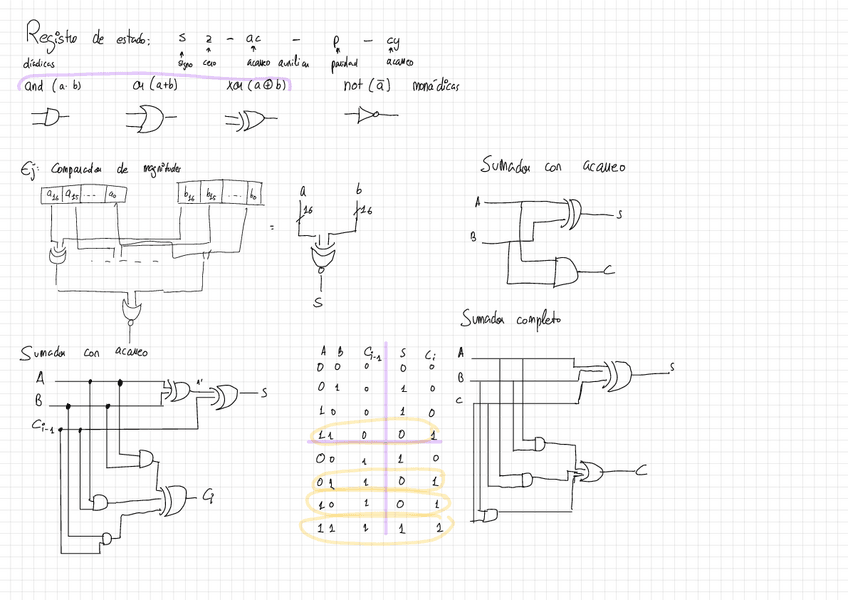 Registro de estado: s z - ac - p - cy
signo cero acarreo auxiliar paridad acarreo
diádicas
and (a·b) or (a+b) xor (a⊕b) not (ā) monádicas
Ej: Comparador de magnitudes
a16 a15 ... a0 b16 b15 ... b0
=
a b
16 16
S
Sumador con acarreo
A
B
S
C
Sumador con acarreo
A
B
Ci-1
A'
S
Ci
A B Ci-1 S Ci
0 0 0 0 0
0 1 0 1 0
1 0 0 1 0
1 1 0 0 1
0 0 1 1 0
0 1 1 0 1
1 0 1 0 1
1 1 1 1 1
Sumador completo
A
B
C
S
C